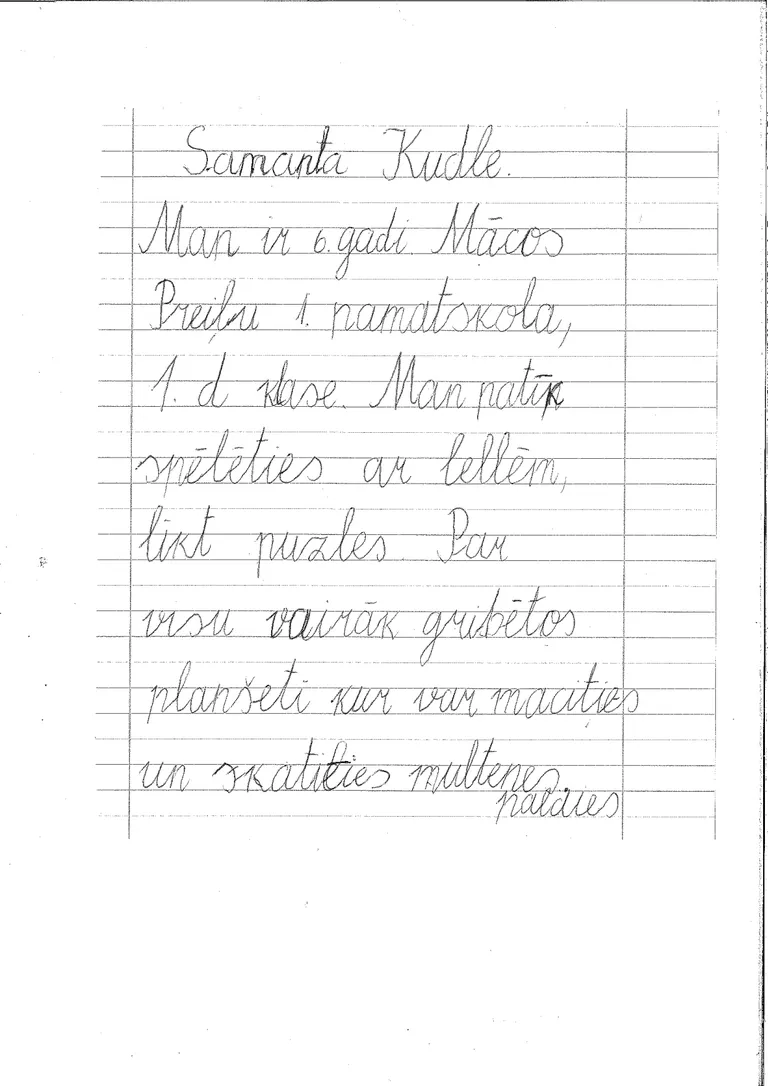 Samanta Kudle.
Man ir 6. gadi. Mācos
Preiļu 1. pamatskola,
1. d klase. Man patīk
spēlēties ar lellēm,
likt puzles. Par
visu vairāk gribētos
planšeti kur var macities
un skatities multenes.
paldies